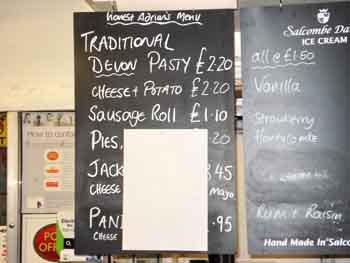 Honest Adrian's Menu
TRADITIONAL
DEVON PASTY £2.20
CHEESE + POTATO £2.20
SAUSAGE ROLL £1.10
PIES, .20
JACK 45
CHEESE MAYO
PANI .95
CHEESE
Salcombe Da
ICE CREAM
all @ £1.50
Vanilla
Strawberry
Rum & Raisin
Hand Made in Salco
How to contac
PO
OF